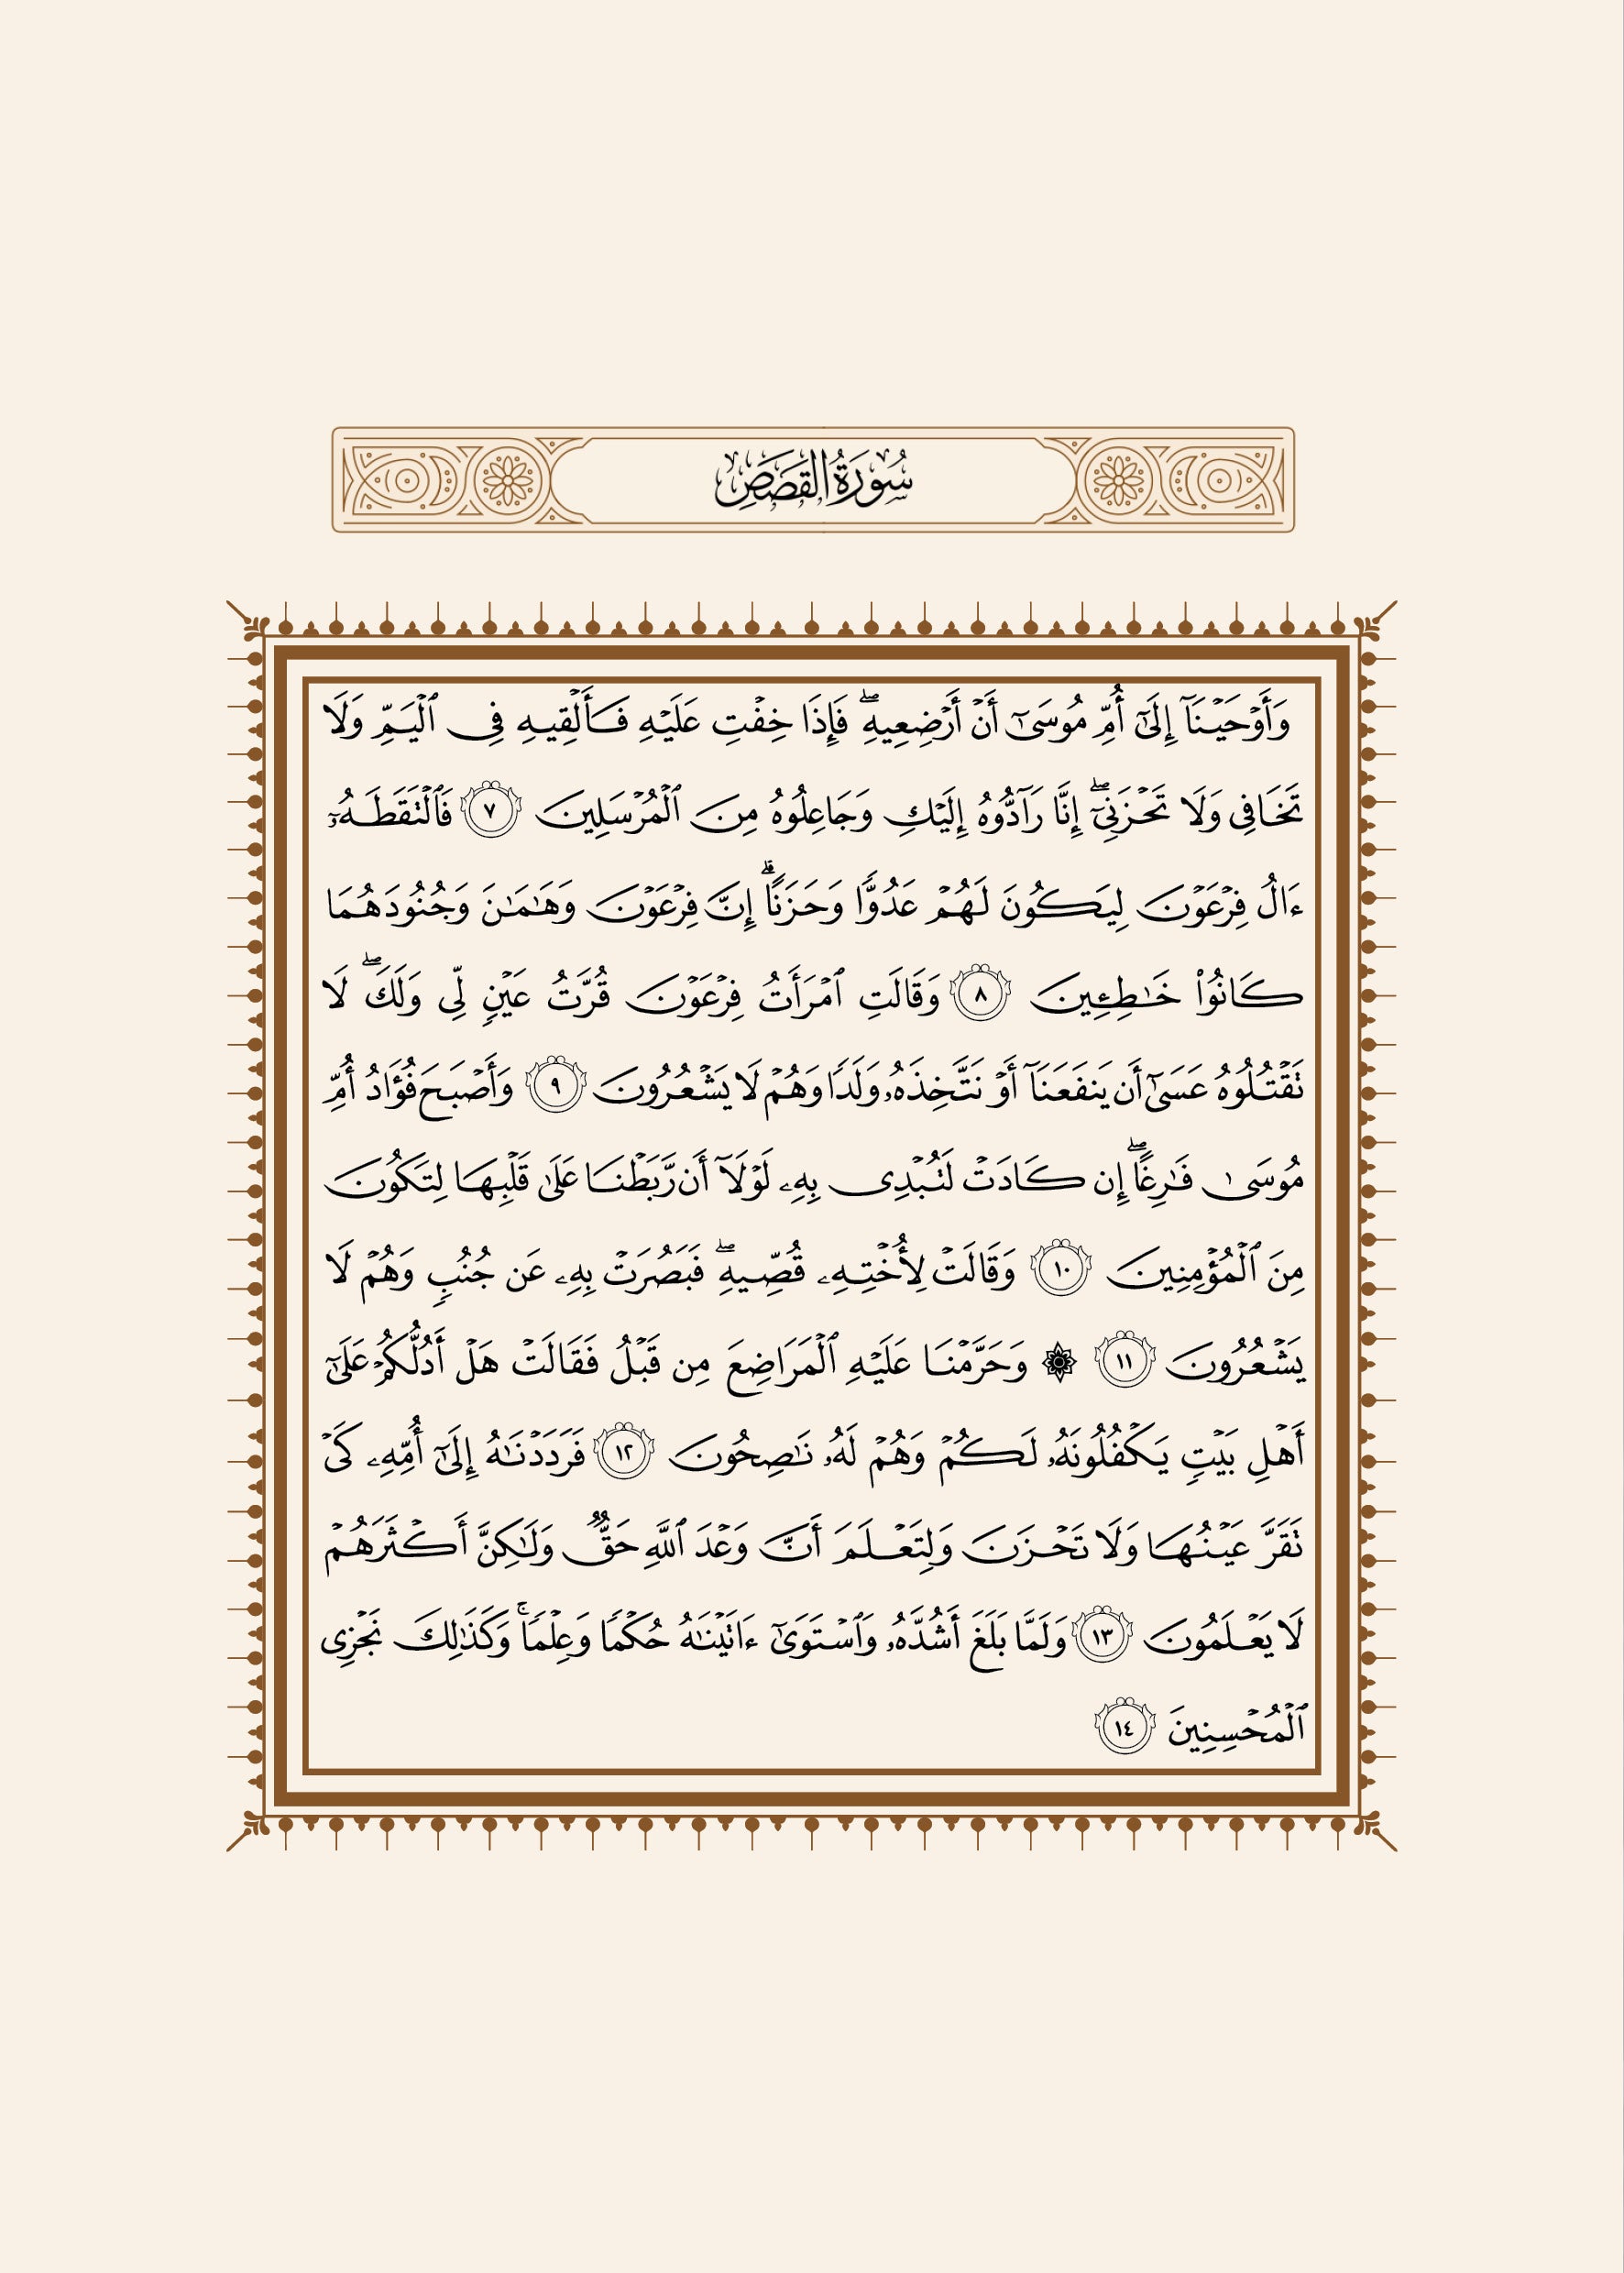 سُورَةُ القَصَصِ
وَأَوۡحَيۡنَآ إِلَىٰٓ أُمِّ مُوسَىٰٓ أَنۡ أَرۡضِعِيهِۖ فَإِذَا خِفۡتِ عَلَيۡهِ فَأَلۡقِيهِ فِي ٱلۡيَمِّ وَلَا
تَخَافِي وَلَا تَحۡزَنِيٓۖ إِنَّا رَآدُّوهُ إِلَيۡكِ وَجَاعِلُوهُ مِنَ ٱلۡمُرۡسَلِينَ ٧ فَٱلۡتَقَطَهُۥٓ
ءَالُ فِرۡعَوۡنَ لِيَكُونَ لَهُمۡ عَدُوّٗا وَحَزَنًاۗ إِنَّ فِرۡعَوۡنَ وَهَٰمَٰنَ وَجُنُودَهُمَا
كَانُواْ خَٰطِـِٔينَ ٨ وَقَالَتِ ٱمۡرَأَتُ فِرۡعَوۡنَ قُرَّتُ عَيۡنٖ لِّي وَلَكَۖ لَا
تَقۡتُلُوهُ عَسَىٰٓ أَن يَنفَعَنَآ أَوۡ نَتَّخِذَهُۥ وَلَدٗا وَهُمۡ لَا يَشۡعُرُونَ ٩ وَأَصۡبَحَ فُؤَادُ أُمِّ
مُوسَىٰ فَٰرِغًاۖ إِن كَادَتۡ لَتُبۡدِي بِهِۦ لَوۡلَآ أَن رَّبَطۡنَا عَلَىٰ قَلۡبِهَا لِتَكُونَ
مِنَ ٱلۡمُؤۡمِنِينَ ١٠ وَقَالَتۡ لِأُخۡتِهِۦ قُصِّيهِۖ فَبَصُرَتۡ بِهِۦ عَن جُنُبٖ وَهُمۡ لَا
يَشۡعُرُونَ ١١ ۞ وَحَرَّمۡنَا عَلَيۡهِ ٱلۡمَرَاضِعَ مِن قَبۡلُ فَقَالَتۡ هَلۡ أَدُلُّكُمۡ عَلَىٰٓ
أَهۡلِ بَيۡتٖ يَكۡفُلُونَهُۥ لَكُمۡ وَهُمۡ لَهُۥ نَٰصِحُونَ ١٢ فَرَدَدۡنَٰهُ إِلَىٰٓ أُمِّهِۦ كَيۡ
تَقَرَّ عَيۡنُهَا وَلَا تَحۡزَنَ وَلِتَعۡلَمَ أَنَّ وَعۡدَ ٱللَّهِ حَقّٞ وَلَٰكِنَّ أَكۡثَرَهُمۡ
لَا يَعۡلَمُونَ ١٣ وَلَمَّا بَلَغَ أَشُدَّهُۥ وَٱسۡتَوَىٰٓ ءَاتَيۡنَٰهُ حُكۡمٗا وَعِلۡمٗاۚ وَكَذَٰلِكَ نَجۡزِي
ٱلۡمُحۡسِنِينَ ١٤